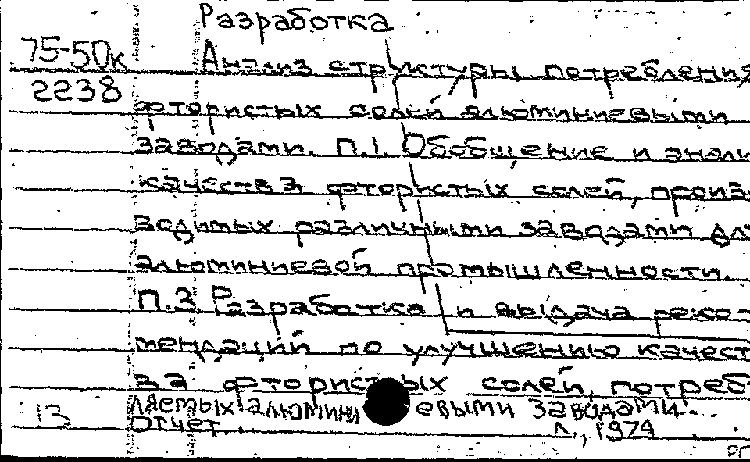 Разработка
75-50к Анализ структуры потребления
2238 фтористых солей алюминиевыми
заводами. П.1. Обобщение и анали
качества фтористых солей, произ
водимых различными заводами дл
алюминиевой промышленности.
П.2 Разработка и выдача реко-
мендаций по улучшению качест
ва фтористых солей, потреб
13 ляемых алюминиевыми заводами.
Отчет. Л., 1974